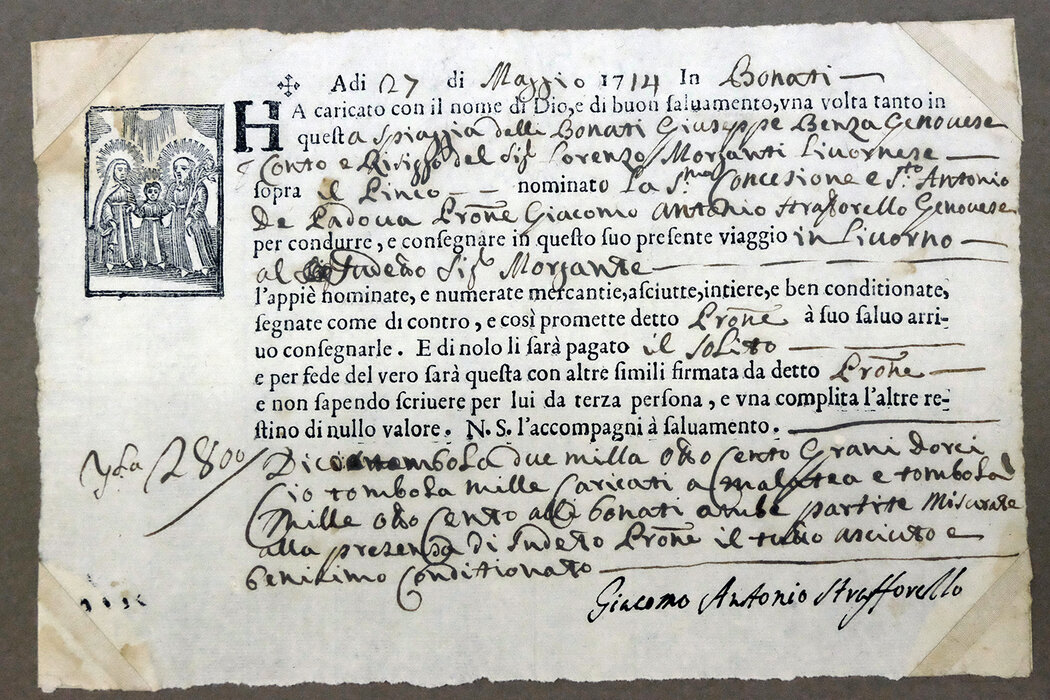 Adi 27 di Maggio 1714 In Bonati
HA caricato con il nome di Dio, e di buon saluamento, vna volta tanto in
questa Spiaggia delli Bonati Giuseppe Benza Genouese
Conto e Risigo del Sig.r Lorenzo Morzanti Liuornese
sopra il Pinco nominato La S.ma Concesione e S.to Antonio
De Padoua Prone Giacomo Antonio Strafforello Genouese
per condurre, e consegnare in questo suo presente viaggio in Liuorno
al Sudeto Sig.r Morzante
l'appiè nominate, e numerate mercantie, asciutte, intiere, e ben conditionate,
segnate come di contro, e così promette detto Prone à suo saluo arri-
uo consegnarle. E di nolo li sarà pagato il Solito
e per fede del vero sarà questa con altre simili firmata da detto Prone
e non sapendo scriuere per lui da terza persona, e vna complita l'altre re-
stino di nullo valore. N. S. l'accompagni à saluamento.
2800
tombola due milla otto Cento Grani
Cio tombola mille Caricati a e tombola
Mille otto Cento alli bonati ambe partite Misurate
alla presenza di Sudeto Prone il tutto asciuto e
benisimo Conditionato
Giacomo Antonio Strafforello